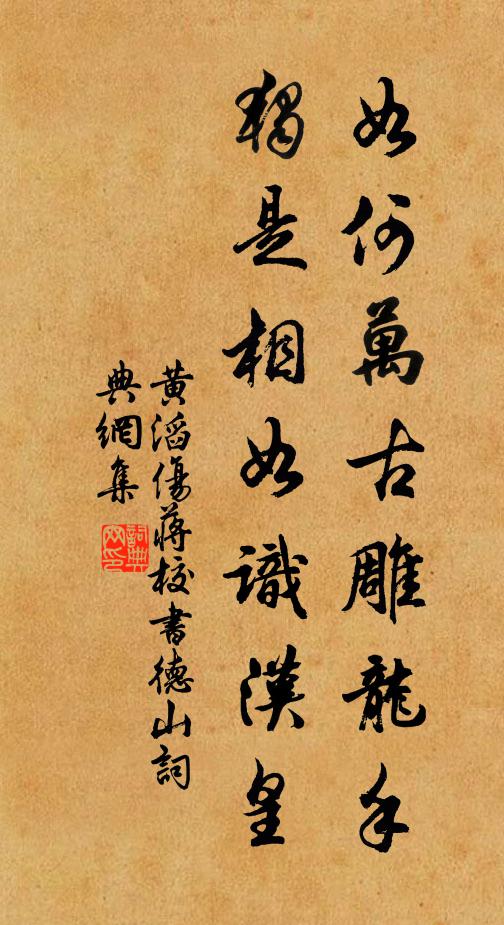 如何萬古雕龍手
獨是相如識漢皇
黃滔傷蔣校書德山詞
典網集
詞典
網印